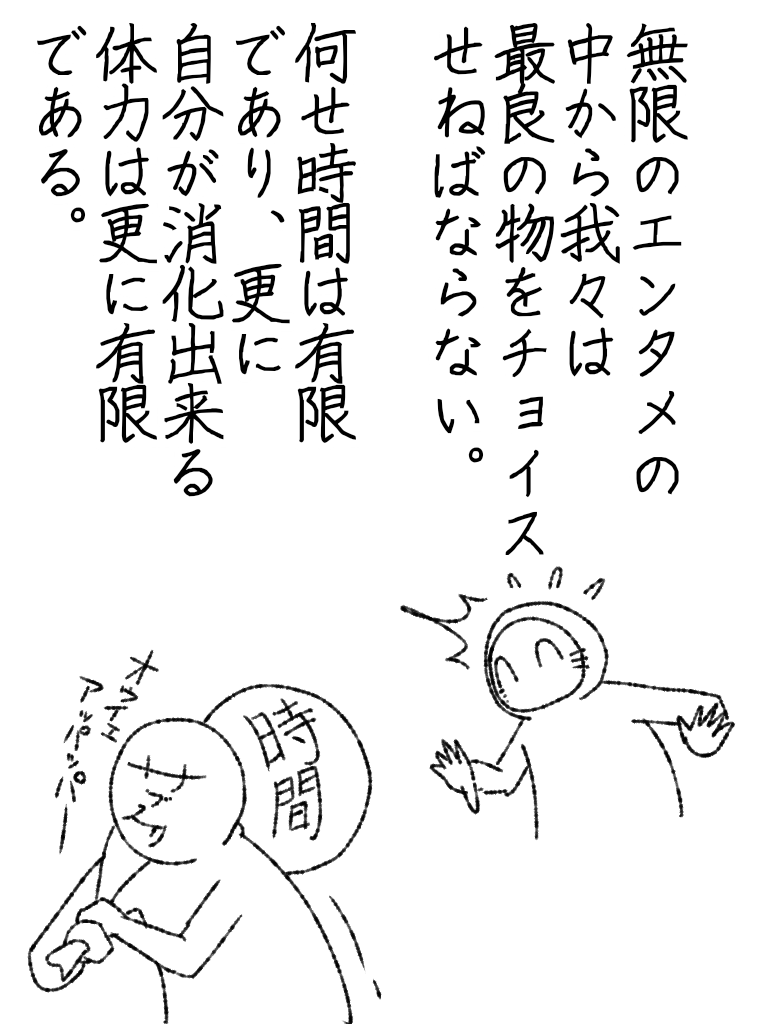 無限のエンタメの
中から我々は
最良の物をチョイス
せねばならない。
何せ時間は有限
であり、更に
自分が消化出来る
体力は更に有限
である。
時間
サブスク
アッパッパー